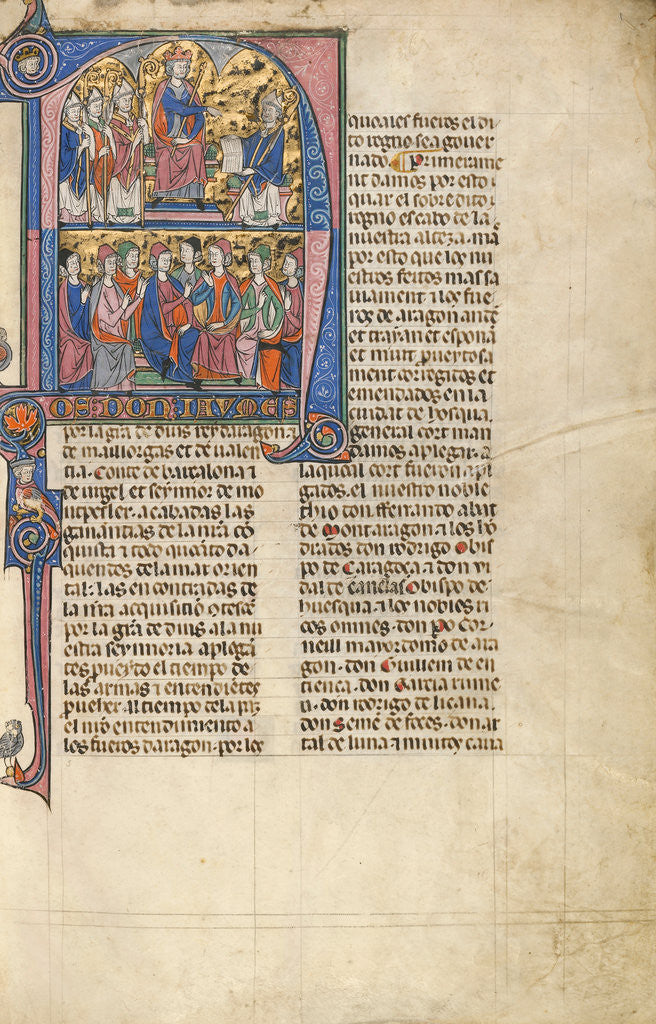 OS: DON: IAUMES
por la gra de dius rey daragon ⁊
de mayllorgas et de ualen
tia. Conte de barcalona ⁊
de urgel et seynnor de mo
ntpesler. acabadas las
ganantias de la nra co
quista ⁊ todo quanto da
quentos de la mar orien
tal. las encontradas de
la nra acquisitio 9tesce
por la gra de dius. a la nu
estra seynnoria aplega
tes. pueyto el tiempo de
las armas ⁊ entendietes
pueher. al tiempo de la paz
el nro entendimiento a
los fueros daragon. por los
quoales fueros el di
to regno sea gouer
nado. ¶ Primerame
nt damos por esto
quar el sobredito
regno es cabo de la
nuestra alteza. ma
por esto que los nu
estros feitos mas sa
uiament ⁊ los fue
ros de aragon ante
et trayan et espona
et muit prueytosa
ment corregitos et
emendados en la
ciudat de hosqua.
general cort man
damos aplegar. a
la qual cort fueron apl
gados. el nuestro noble
thio don fferrando abat
de Montaragon ⁊ los ho
drados don rodrigo Obis
po de Caragoça ⁊ don vi
dal de canelas Obispo de
huesqua ⁊ a los nobles ri
cos omnes. don Po cor
neill mayortomo de ara
gon. don Guillem de en
tienca. don Garcia rume
u. don rodrigo de licana.
don Seme de foces. don ar
tal de luna ⁊ muitos caua